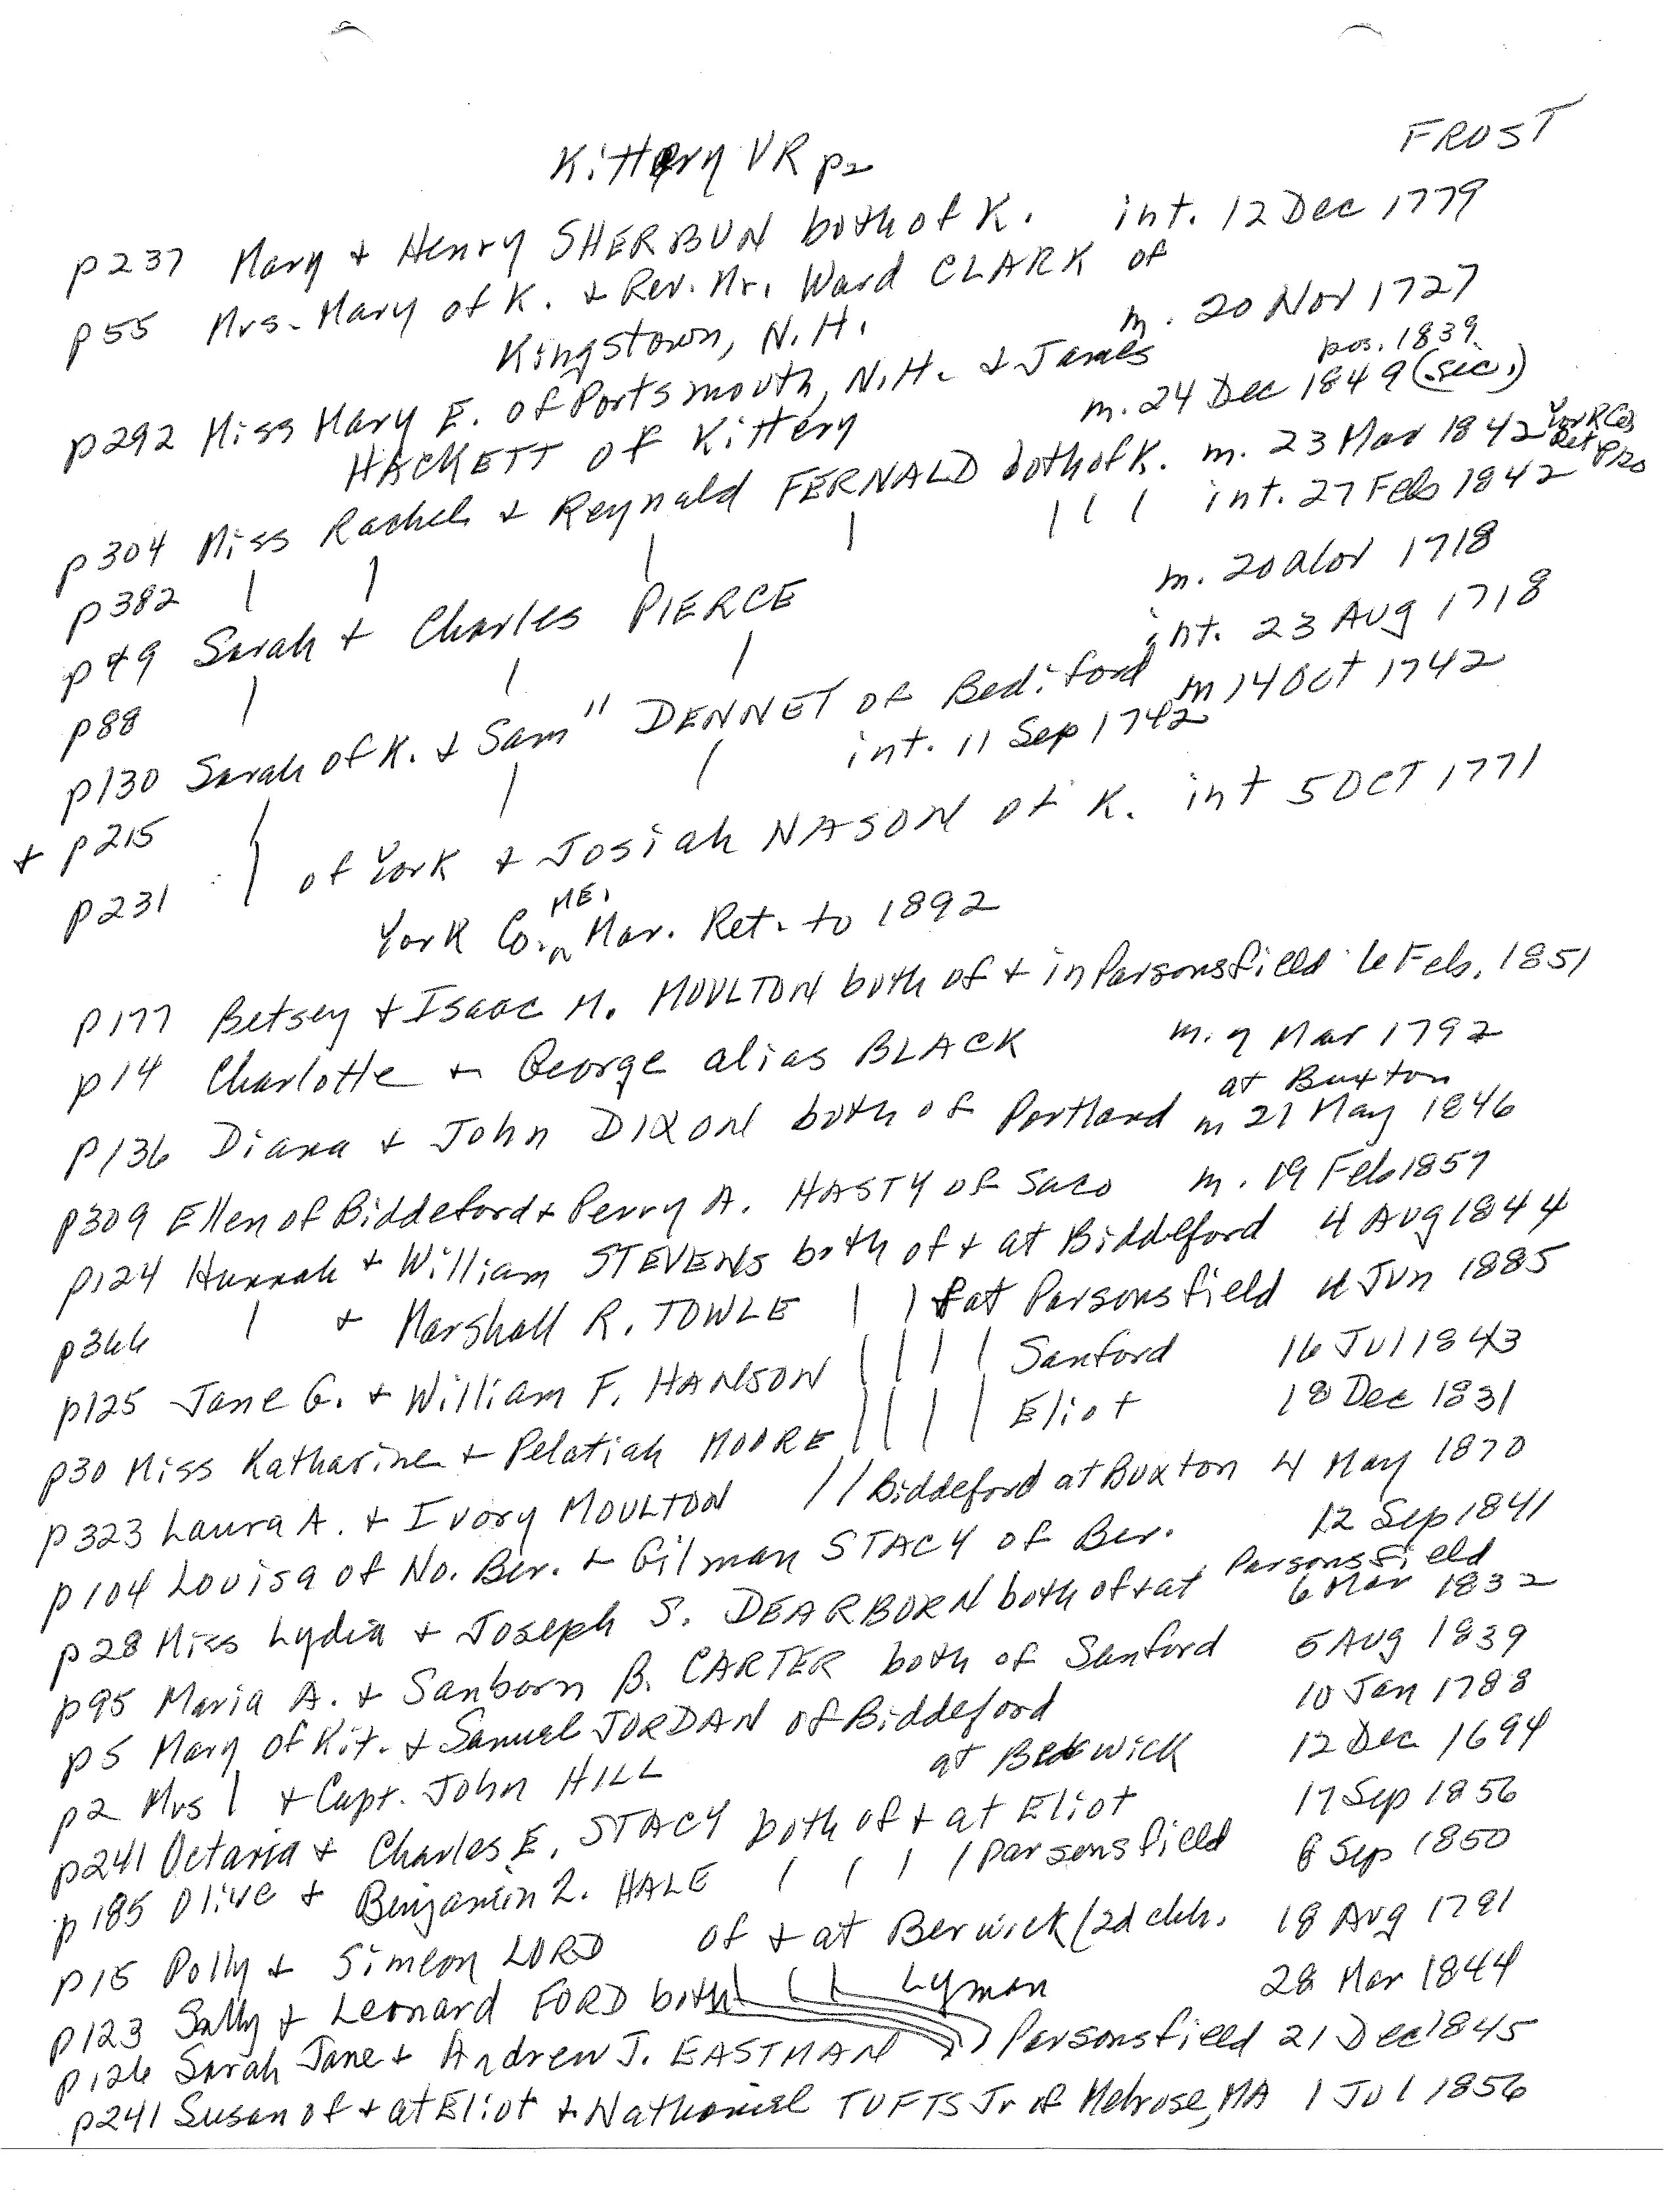 FROST
Kittery VR p2
p237 Mary + Henry SHERBUN both of K. int. 12 Dec 1779
p55 Mrs. Mary of K. + Rev. Mr. Ward CLARK of
Kingstown, N.H. m. 20 Nov 1727
p292 Miss Mary E. of Portsmouth, N.H. + James pos. 1839
HACKETT of Kittery m. 24 Dec 1849 (sic.)
p304 Miss Rachel + Reynald FERNALD both of K. m. 23 Mar 1842 York Co Ret p20
p382 | | | | | | | int. 27 Feb 1842
p49 Sarah + Charles PIERCE m. 20 Nov 1718
p88 | | | int. 23 Aug 1718
p130 Sarah of K. + Sam" DENNET of Bediford m 14 Oct 1742
+ p215 | | | int. 11 Sep 1742
p231 | of York + Josiah NASON of K. int 5 OCT 1771
York Co. ME. Mar. Ret. to 1892
p177 Betsey + Isaac M. MOULTON both of + in Parsonsfield 6 Feb. 1851
p14 Charlotte + George alias BLACK m. 7 Mar 1792
at Buxton
p136 Diana + John DIXON both of Portland m 21 May 1846
p309 Ellen of Biddeford + Perry A. HASTY of Saco m. 19 Feb 1857
p124 Hannah + William STEVENS both of + at Biddeford 4 Aug 1844
p366 | + Marshall R. TOWLE | | + at Parsonsfield 4 Jun 1885
p125 Jane G. + William F. HANSON | | | | Sanford 16 Jul 1843
p30 Miss Katharine + Pelatiah MOORE | | | | Eliot 18 Dec 1831
p323 Laura A. + Ivory MOULTON | | Biddeford at Buxton 4 May 1870
p104 Louisa of No. Ber. + Gilman STACY of Ber. 12 Sep 1841
p28 Miss Lydia + Joseph S. DEARBORN both of + at Parsonsfield 6 Mar 1832
p95 Maria A. + Sanborn B. CARTER both of Sanford 5 Aug 1839
p5 Mary of Kit. + Samuel JORDAN of Biddeford 10 Jan 1788
p2 Mrs | + Capt. John HILL at Berwick 12 Dec 1694
p241 Octavia + Charles E. STACY both of + at Eliot 17 Sep 1856
p185 Olive + Benjamin L. HALE | | | | Parsonsfield 8 Sep 1850
p15 Polly + Simeon LORD of + at Berwick (2d chh. 18 Aug 1791
p123 Sally + Leonard FORD both | | | Lyman 28 Mar 1844
p126 Sarah Jane + Andrew J. EASTMAN Parsonsfield 21 Dec 1845
p241 Susan of + at Eliot + Nathaniel TUFTS Jr of Melrose, MA 1 Jul 1856